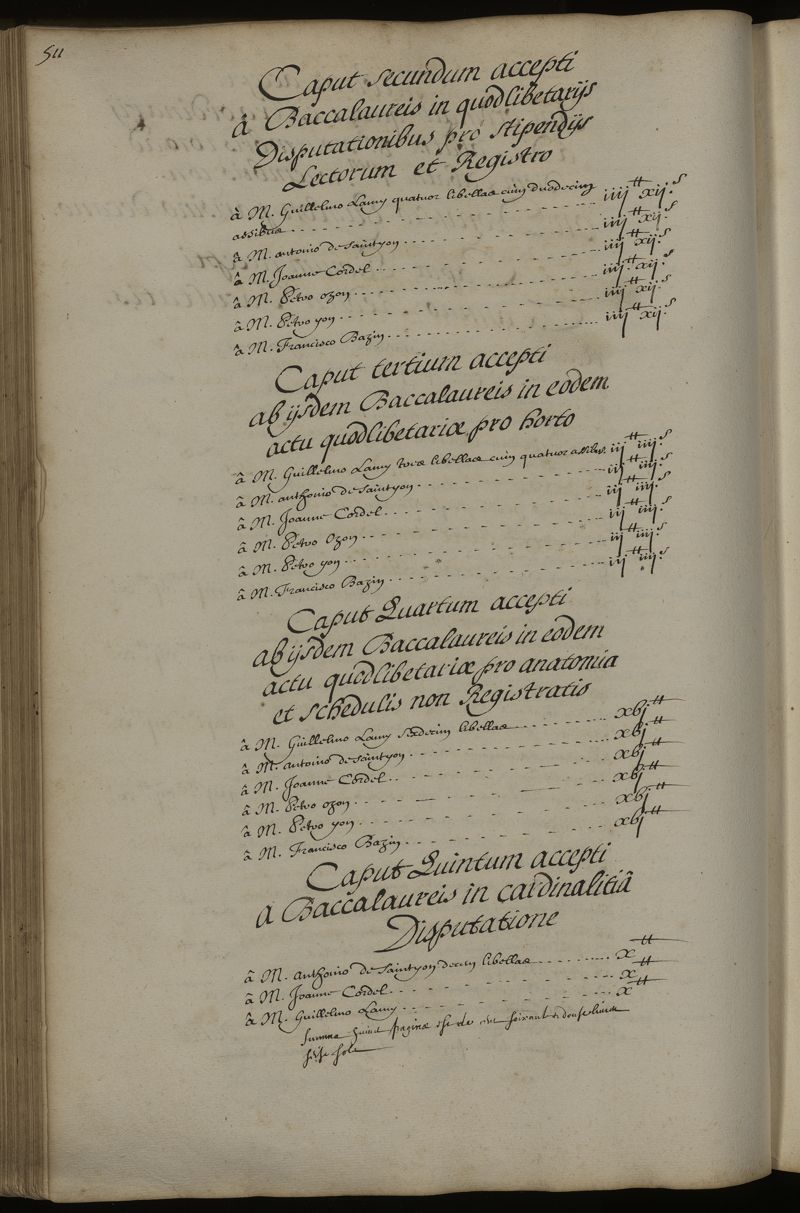 511
Caput secundum accepti
â Baccalaureis in quodlibetarijs
Disputationibus pro stipendijs
Lectorum et Registro
à M. Guillelmo Lamy quatuor libellae cum duodecim
assibus iiij tt xij s
â M. antonio de saintyon iiij tt xij s
â M. Joanne Cordel iiij tt xij s
â M. Petro ozon iiij tt xij s
â M. Petro yon iiij tt xij s
â M. Francisco Bazin iiij tt xij s
Caput tertium accepti
ab ijsdem Baccalaureis in eodem
actu quodlibetariæ pro horto
â M. Guillelmo Lamy tres libellae cum quatuor assibus iij tt iiij s
â M. anthonio de saintyon iij tt iiij s
â M. Joanne Cordel iij tt iiij s
â M. Petro Ozon iij tt iiij s
â M. Petro yon iij tt iiij s
â M. Francisco Bazin iij tt iiij s
Caput Quartum accepti
ab ijsdem Baccalaureis in eodem
actu quodlibetariæ pro anatomia
et schedulis non Registratis
â M. Guillelmo Lamy sexdecim libellae xbj tt
â M. antonio de saintyon xbj tt
â M. Joanne Cordel xbj tt
â M. Petro ozon xbj tt
â M. Petro yon xbj tt
â M. Francisco Bazin xbj tt
Caput Quintum accepti
a Baccalaureis in cardinalitiâ
Disputatione
â M. anthonio de Saintyon decem libellae x tt
â M. Joanne Cordel x tt
â M. Guillelmo Lamy x tt
Summa huius paginæ est de cent soixante douse livres